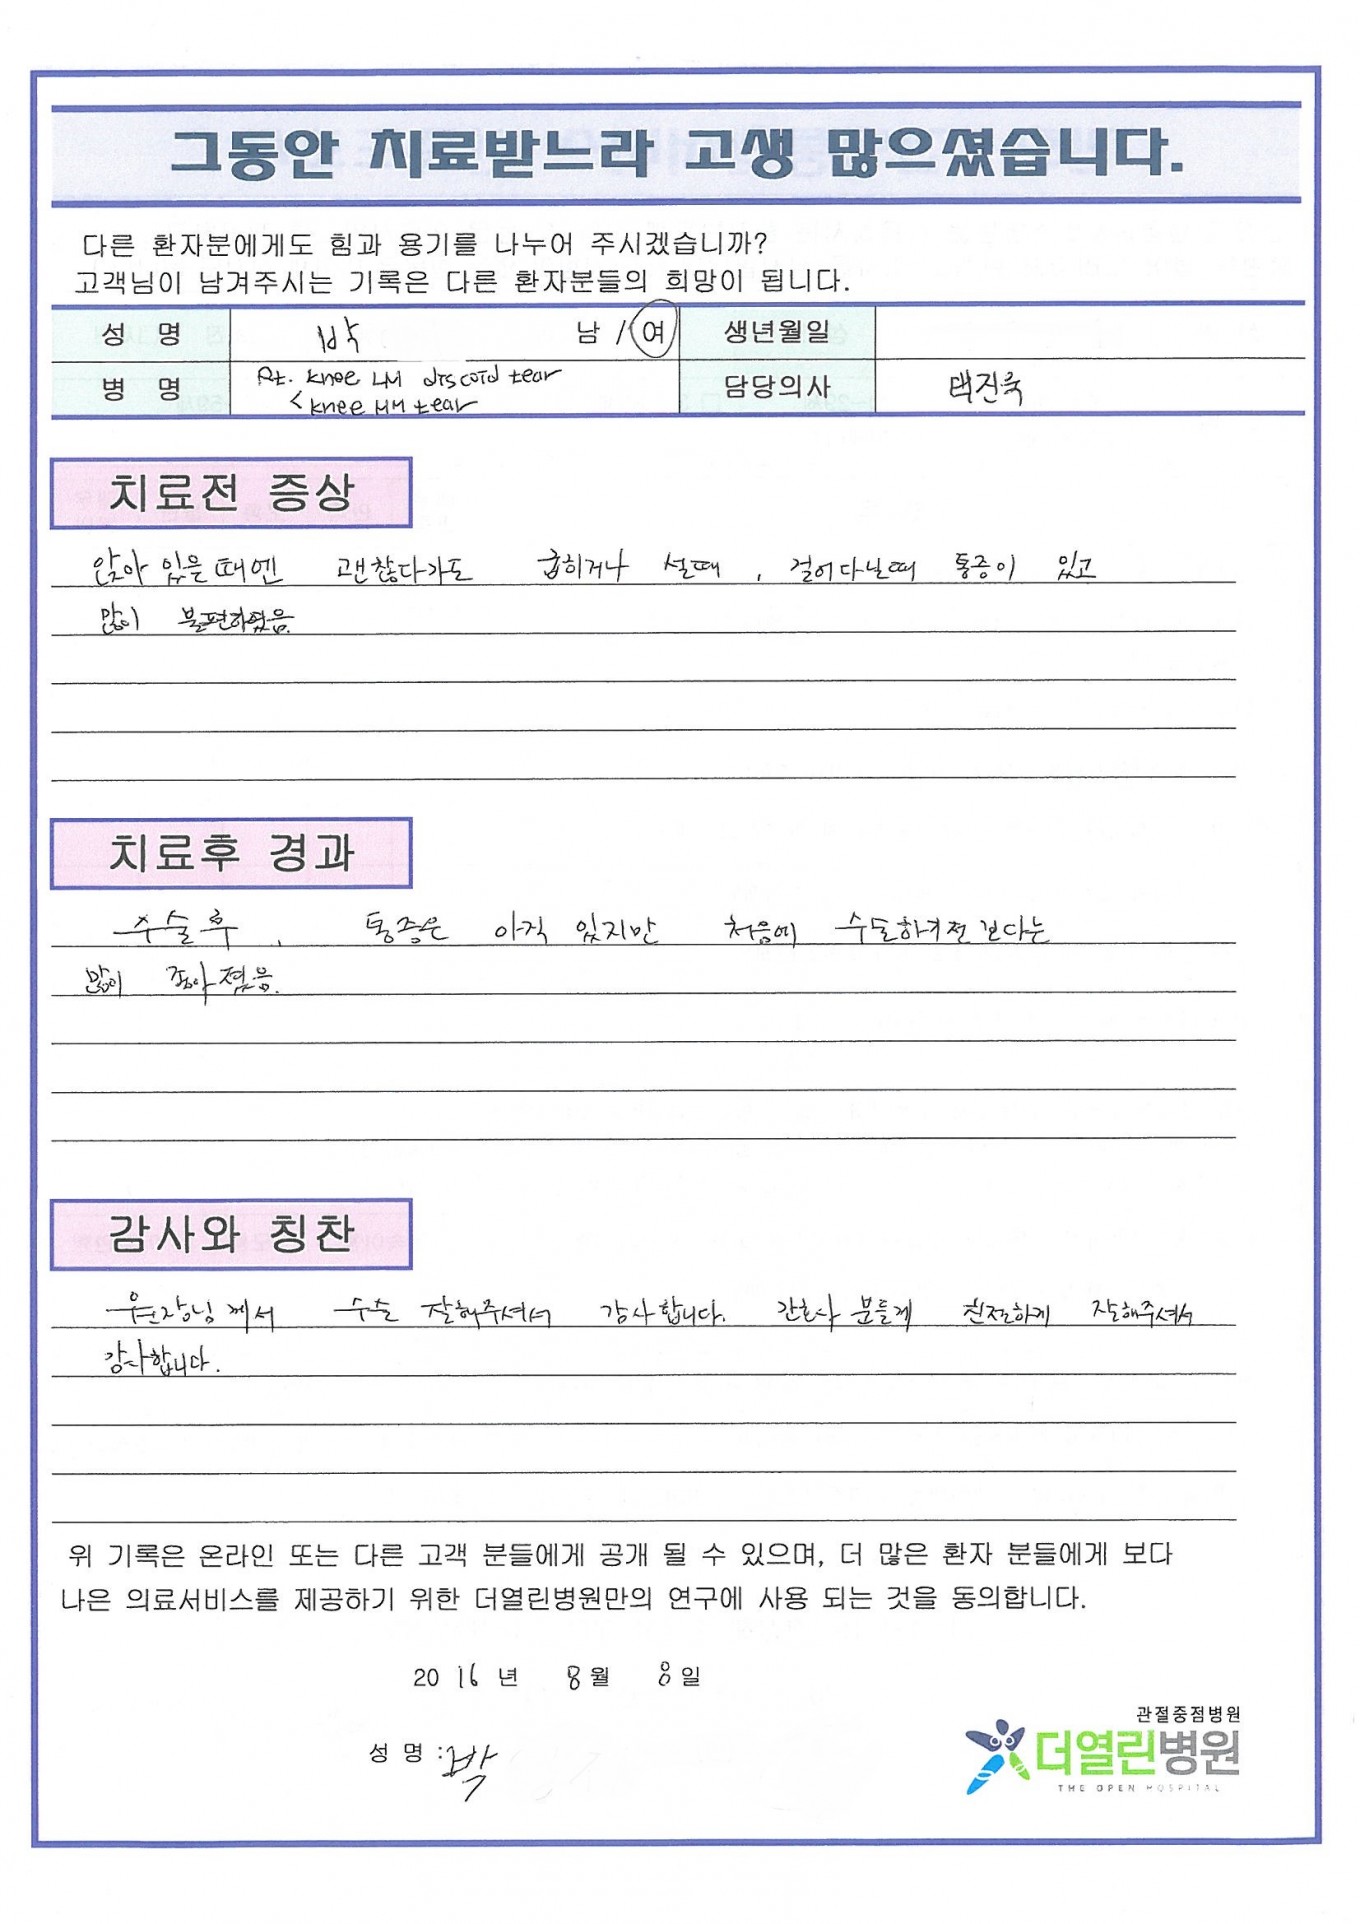 그동안 치료받느라 고생 많으셨습니다.
다른 환자분에게도 힘과 용기를 나누어 주시겠습니까?
고객님이 남겨주시는 기록은 다른 환자분들의 희망이 됩니다.
성 명 박 남 / 여 생년월일
병 명 Rt. knee LM discoid tear 담당의사 태진욱
< knee MM tear
치료전 증상
앉아 있을때엔 괜찮다가도 급히거나 설때, 걸어다닐때 통증이 있고
많이 불편하였음.
치료후 경과
수술후, 통증은 아직 있지만 처음에 수술하기전 보다는
많이 좋아졌음.
감사와 칭찬
원장님께서 수술 잘해주셔서 감사합니다. 간호사 분들께 친절하게 잘해주셔서
감사합니다.
위 기록은 온라인 또는 다른 고객 분들에게 공개 될 수 있으며, 더 많은 환자 분들에게 보다
나은 의료서비스를 제공하기 위한 더열린병원만의 연구에 사용 되는 것을 동의합니다.
2016년 8월 8일
관절중점병원
성 명 : 박
더열린병원
THE OPEN HOSPITAL